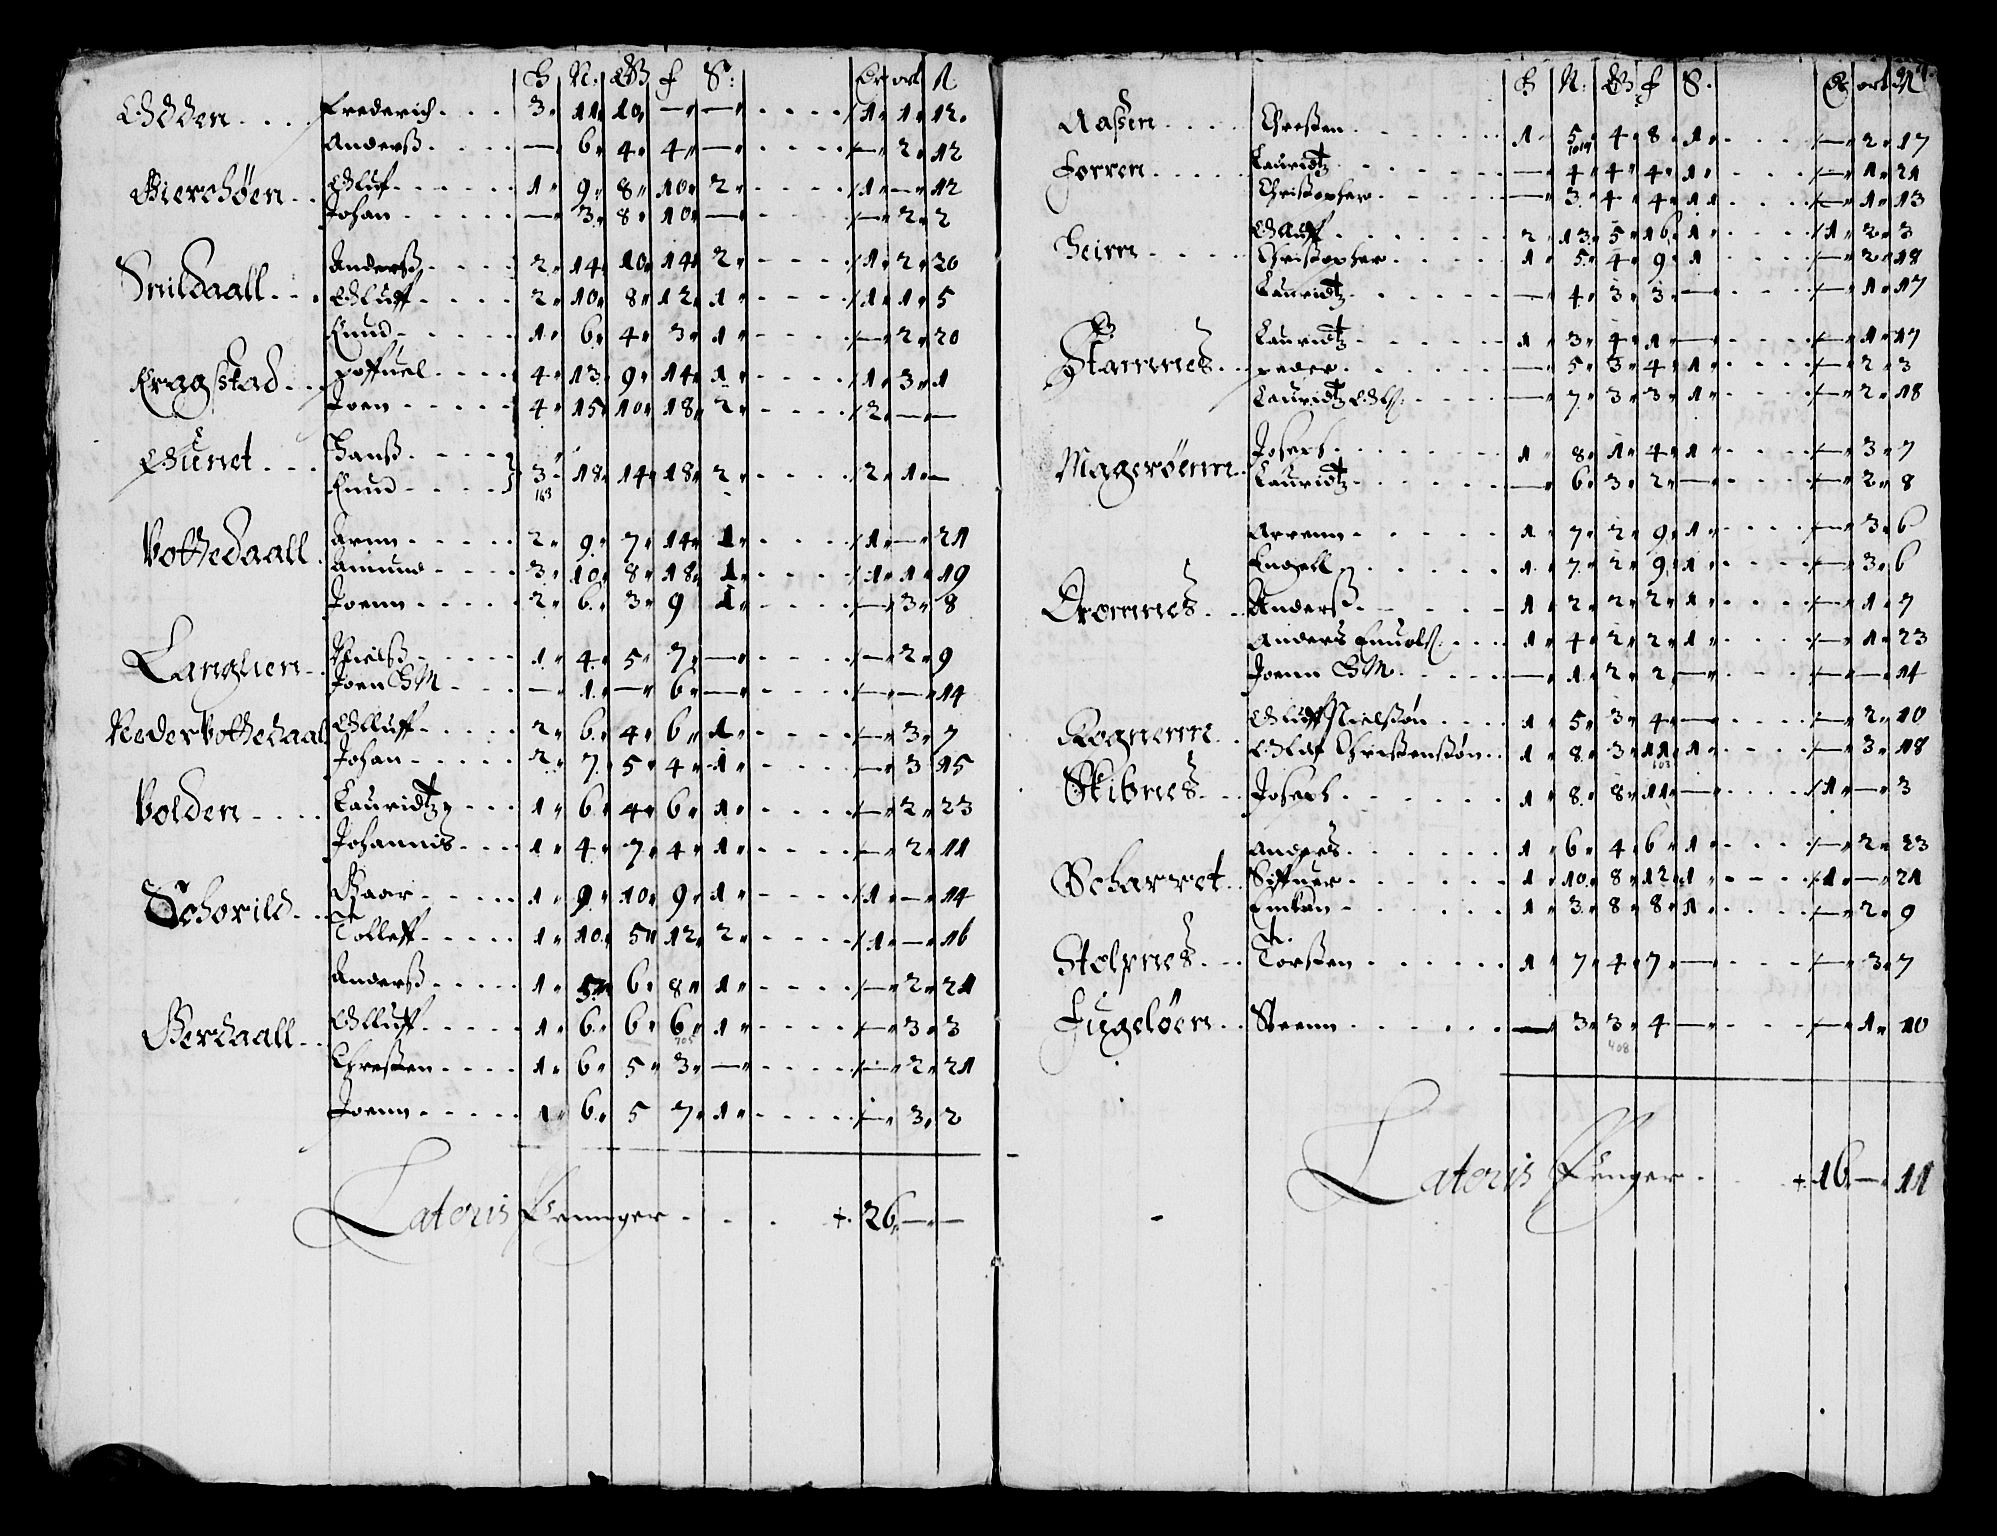 H N: Q f S: Dr ort ß
Odden Frederich 3 11 10 — — 1 1 12
Anderß — 6 4 4 — — 2 12
Bierchøen Oluf 1 9 8 10 2 1 — 12
Johan — 3 8 10 — — 2 2
Snildaall Anderß 2 14 10 14 2 1 2 20
Oluff 2 10 8 12 1 1 1 5
Knud 1 6 4 3 1 — 2 20
Kragßtad Poffuel 4 13 9 14 1 1 3 1
Joen 4 15 10 18 2 2 — —
Øunet Hanß
Knud 3 18 14 18 2 2 1 —
163
Vottedaall Arnn 2 9 7 14 1 1 — 21
Amund 3 10 8 18 1 1 1 19
Joenn 2 6 3 9 1 — 3 8
Langlien Nielß 1 4 5 7 — — 2 9
Joen HM — 1 — 6 — — — 14
Neder Vottedaal Olluff 2 6 4 6 1 — 3 7
Johan 2 7 5 4 1 — 3 15
Volden Lauridtz 1 6 4 6 1 — 2 23
Johannis 1 4 7 4 1 — 2 11
Schorild Baar 1 9 10 9 1 1 — 14
Tolleff 1 10 5 12 2 1 — 16
Anderß 1 5 6 8 1 — 2 21
Berdaall Olluff 1 6 6 6 1 — 3 3
705
Chresten 1 6 5 3 — — 2 21
Joenn 1 6 5 7 1 — 3 2
Lateris Penninger + 26 — —
H N: Q f S. Dr ort ß
Aaßen Chresten 1 5 4 8 1 — 2 17
Forren Lauridtz — 4 4 4 1 — 1 21
Christopher — 3 4 4 1 — 1 13
Heim Oluff 2 13 5 16 1 1 2 3
Christopher 1 5 4 9 1 — 2 18
Lauridtz — 4 3 3 — — 1 17
Stamnes Lauridtz 1 3 4 1 — — 1 17
Peder — 5 3 4 1 — 2 3
Lauridtz Olß — 7 3 3 1 — 2 18
Magerøenn Joseph 1 8 1 4 1 — 3 7
Lauridtz — 6 3 2 — — 2 8
Arrenn 1 7 2 9 1 — 3 6
Engell 1 7 2 9 1 — 3 6
Dromnes Anderß 1 2 2 2 1 — 1 7
Anders 1 4 2 2 1 — 1 23
Joenn HM — 1 2 2 — — — 14
Rognenn Oluff Nielsßøn 1 5 3 4 — — 2 10
Oluf Christenßøn 1 8 3 11 1 — 3 18
103
Skibnes Joseph 1 8 8 11 — 1 — 3
Scharvet Anders 1 6 4 6 1 — 2 23
Siffuer 1 10 8 12 1 1 — 21
1 3 8 8 1 — 2 9
Stolpnes Torsten 1 7 4 7 — — 3 7
Fugeløen Steenn — 3 3 4 — — 1 10
408
Lateris Penger + 16 — 11